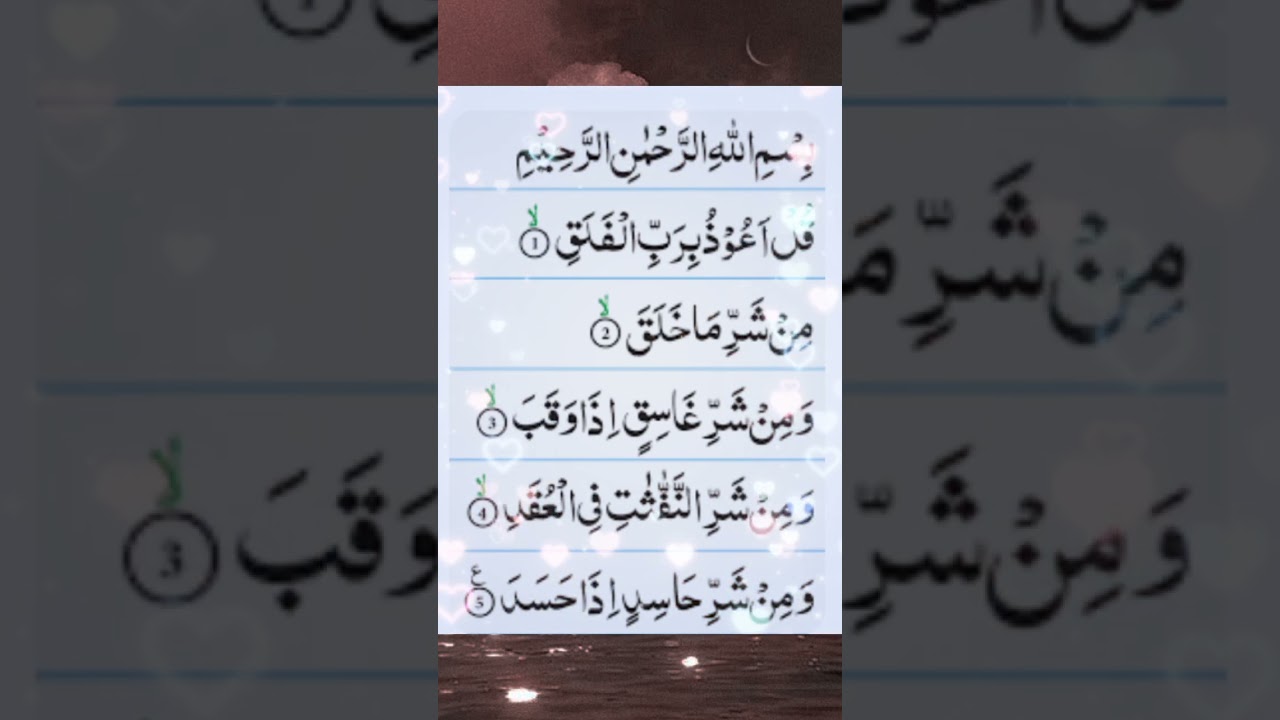 بِسْمِ اللّٰهِ الرَّحْمٰنِ الرَّحِيْمِ
قُلْ اَعُوْذُ بِرَبِّ الْفَلَقِ ۙ‏ ①
مِنْ شَرِّ مَا خَلَقَ ۙ‏ ②
وَمِنْ شَرِّ غَاسِقٍ اِذَا وَقَبَ ۙ‏ ③
وَمِنْ شَرِّ النَّفّٰثٰتِ فِى الْعُقَدِ ۙ‏ ④
وَمِنْ شَرِّ حَاسِدٍ اِذَا حَسَدَ ع ⑤